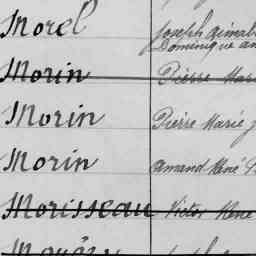 Morel Joseph
Dominique
Morin Pierre
Morin Pierre Marie
Morin Amand René
Morisseau Victor René